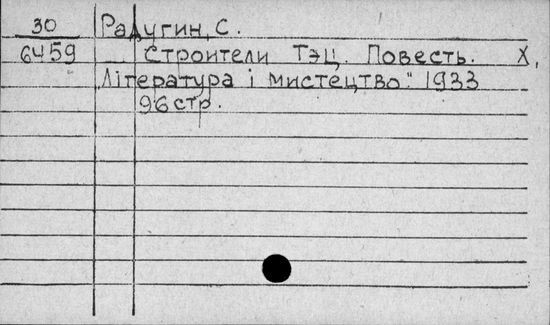 30
6459
Радугин, С.
Строители Тэц. Повесть. Х,
Література і мистецтво" 1933
96 стр.